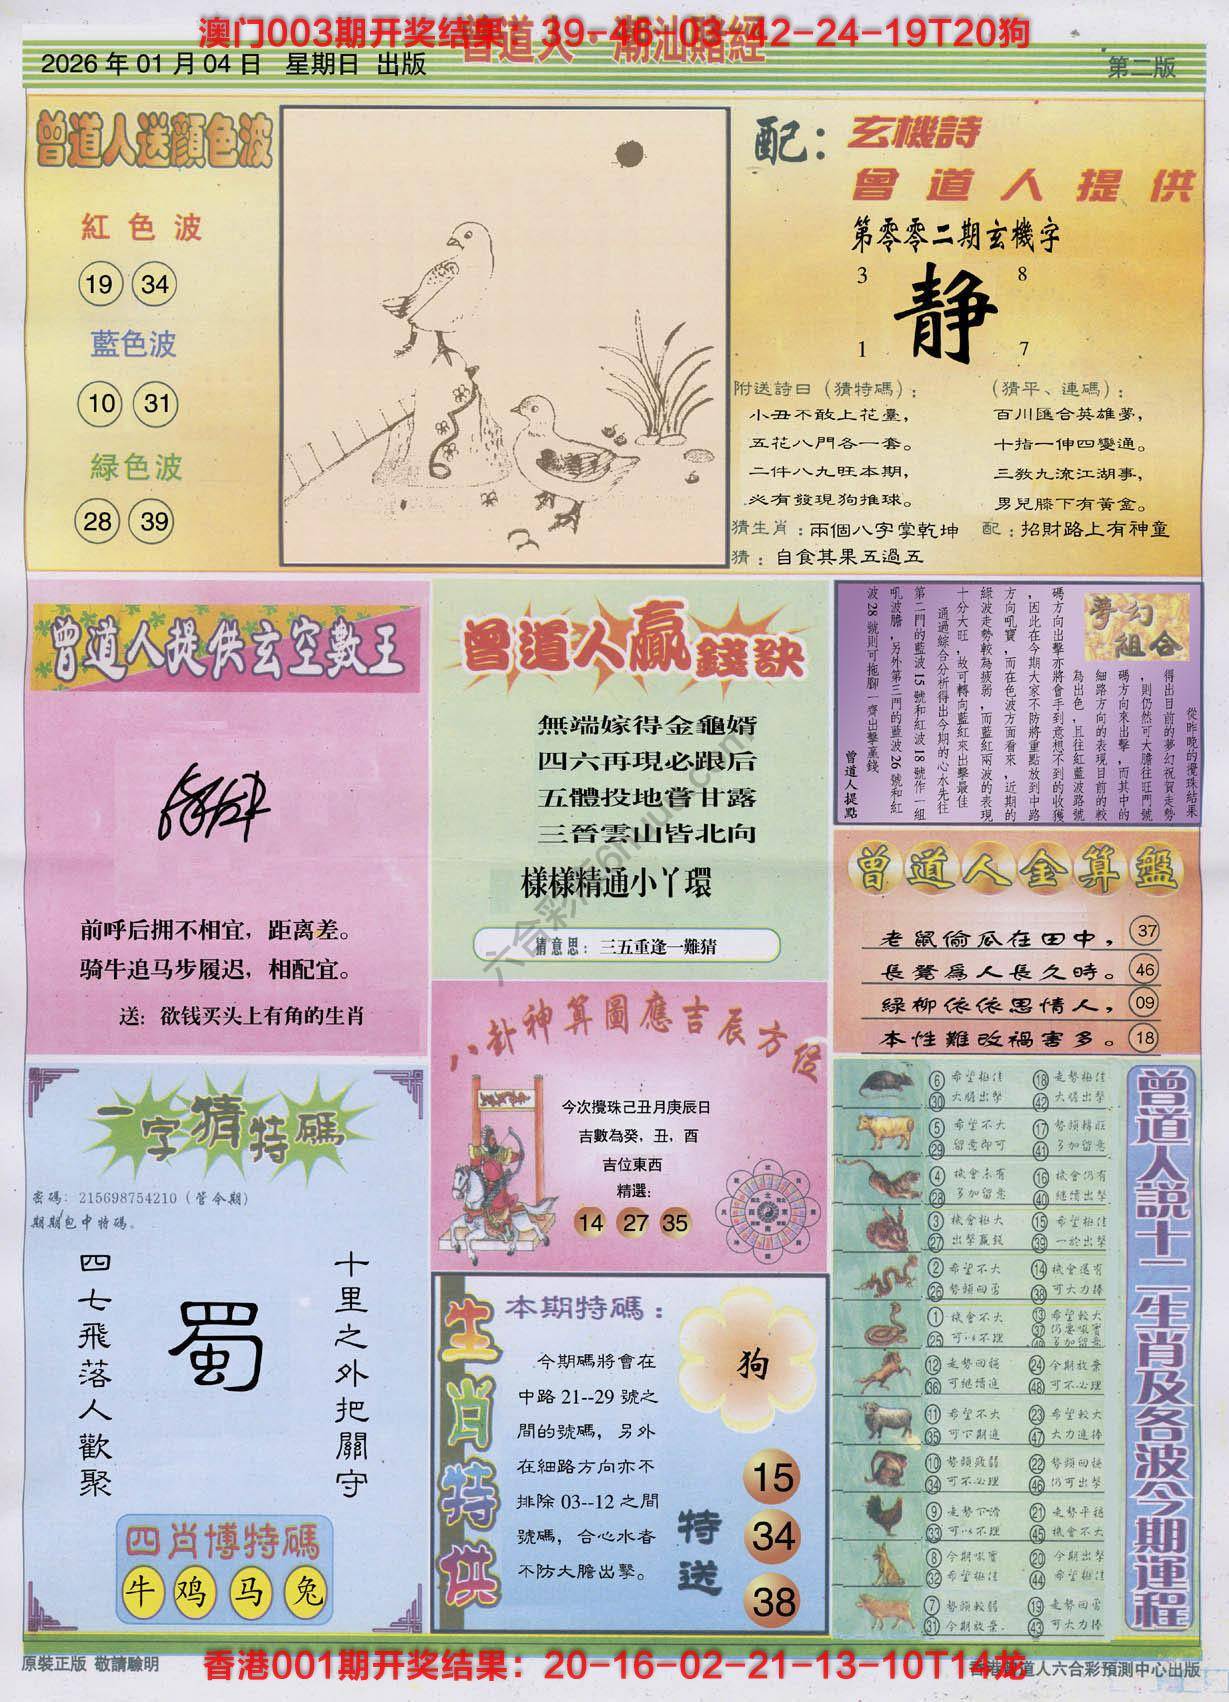 澳门003期开奖结果：39-46-03-42-24-19T20狗
曾道人·潮汕賭經
2026年01月04日 星期日 出版
第二版
曾道人送顏色波
紅色波
19 34
藍色波
10 31
綠色波
28 39
配：玄機詩
曾道人提供
第零零二期玄機字
3 8
静
1 7
附送詩曰（猜特碼）：
小丑不敢上花臺，
五花八門各一套。
二件八九旺本期，
必有發現狗推球。
（猜平、連碼）：
百川匯合英雄夢，
十指一伸四變通。
三教九流江湖事，
男兒膝下有黃金。
猜生肖：兩個八字掌乾坤 配：招財路上有神童
猜：自食其果五過五
曾道人提供玄空數王
前呼后拥不相宜，距离差。
骑牛追马步履迟，相配宜。
送：欲钱买头上有角的生肖
曾道人贏錢訣
無端嫁得金龜婿
四六再現必跟后
五體投地嘗甘露
三晉雲山皆北向
樣樣精通小丫環
猜意思：三五重逢一難猜
夢幻組合
從昨晚的攪珠結果
得出目前的夢幻祝賀走勢
，則仍然可大膽往旺門號
碼方向來出擊，而其中的
細路方向的表現目前的較
為出色，且往紅藍波路號
碼方向出擊亦將會手到意想不到的收獲
，因此在今期大家不防將重點放到中路
方向吼寶，而在色波方面看來，近期的
綠波走勢較為疲弱，而藍紅兩波的表現
十分大旺，故可轉向藍紅來出擊最佳
通過綜合分析得出今期的心水先往
第二門的藍波15號和紅波18號作一組
吼波膽，另外第三門的藍波26號和紅
波28號則可拖腳一齊出擊贏錢
曾道人提點
曾道人金算盤
老鼠偷瓜在田中， 37
長駕為人長久時。 46
綠柳依依思情人， 09
本性難改禍害多。 18
八卦神算圖應吉辰方位
今次攪珠己丑月庚辰日
吉數為癸，丑，酉
吉位東西
精選：
14 27 35
一字猜特碼
密碼：215698754210（管今期）
期期包中特碼。
十里之外把關守
蜀
四七飛落人歡聚
四肖博特碼
牛 鸡 马 兔
生肖特供
本期特碼：
今期碼將會在
中路21--29號之
間的號碼，另外
在細路方向亦不
排除03--12之間
號碼，合心水者
不防大膽出擊。
狗
特送
15
34
38
曾道人説十二生肖及各波今期運程
6 希望極佳 18 走勢極佳
30 大膽出擊 42 大膽出擊
5 希望不大 17 勢頭轉旺
29 留意即可 41 多加留意
4 機會未有 16 機會仍有
28 多加留意 40 繼續出擊
3 機會極大 15 希望極佳
27 出擊贏錢 39 一於出擊
2 希望不大 14 機會還有
26 勢頭回勇 38 可大力捧
1 機會不大 13 希望較大
25 可以不理 37 仍要吼實
49 多加留意
12 走勢回穩 24 今期放棄
36 可繼續進 48 可不必理
11 希望不大 23 希望較大
35 可下期進 47 大力進捧
10 勢頭疲弱 22 勢頭回穩
34 可不必理 46 仍可出擊
9 走勢下滑 21 走勢平穩
33 可以不理 45 機會不大
8 今期吼實 20 今期出擊
32 希望極佳 44 希望極佳
7 勢頭較弱 19 走勢回勇
31 今期放棄 43 可大力捧
六合彩库6huu.com
原裝正版 敬請驗明
香港001期开奖结果：20-16-02-21-13-10T14龙
香港曾道人六合彩預測中心出版